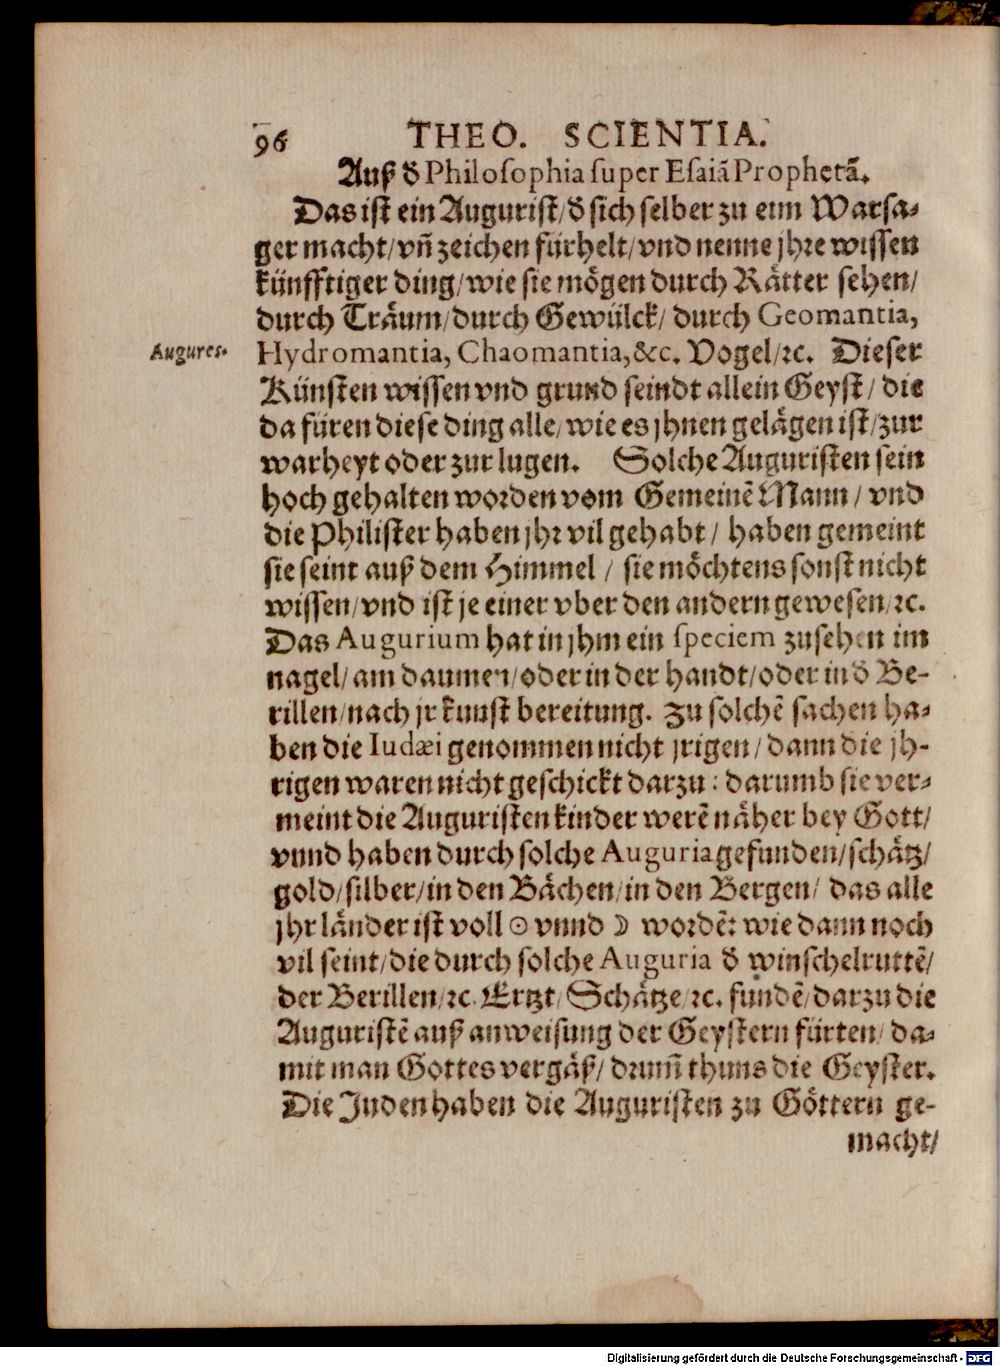 96 THEO. SCIENTIA.
Auß đ Philosophia super Esaiā Prophetā.
Das ist ein Augurist/đ sich selber zu eim Warsa⸗
ger macht/vn̄ zeichen fürhelt/vnd nenne jhre wissen
künfftiger ding/wie sie mögen durch Rätter sehen/
durch Träum/durch Gewülck/durch Geomantia,
Augures.
Hydromantia, Chaomantia,&c. Vogel/ꝛc. Dieser
Künsten wissen vnd grund seindt allein Geyst/die
da füren diese ding alle/wie es jhnen gelägen ist/zur
warheyt oder zur lugen. Solche Auguristen sein
hoch gehalten worden vom Gemeinē Mann/vnd
die Philister haben jhr vil gehabt/haben gemeint
sie seint auß dem Himmel/sie möchtens sonst nicht
wissen/vnd ist je einer vber den andern gewesen/ꝛc.
Das Augurium hat in jhm ein speciem zusehen im
nagel/am daumen/oder in der handt/oder in đ Be-
rillen/nach jr kunst bereitung. Zu solchē sachen ha⸗
ben die Iudæi genommen nicht jrigen/dann die jh-
rigen waren nicht geschickt darzu: darumb sie ver⸗
meint die Auguristen kinder werē näher bey Gott/
vnnd haben durch solche Auguria gefunden/schätz/
gold/silber/in den Bächen/in den Bergen/das alle
jhr länder ist voll ☉ vnnd ☽ wordē: wie dann noch
vil seint/die durch solche Auguria đ winschelruttē/
der Berillen/ꝛc. Ertzt/Schätze/ꝛc. fundē/darzu die
Auguristē auß anweisung der Geystern fürten/da⸗
mit man Gottes vergäß/drum̄ thuns die Geyster.
Die Juden haben die Auguristen zu Göttern ge-
macht/
Digitalisierung gefördert durch die Deutsche Forschungsgemeinschaft - DFG